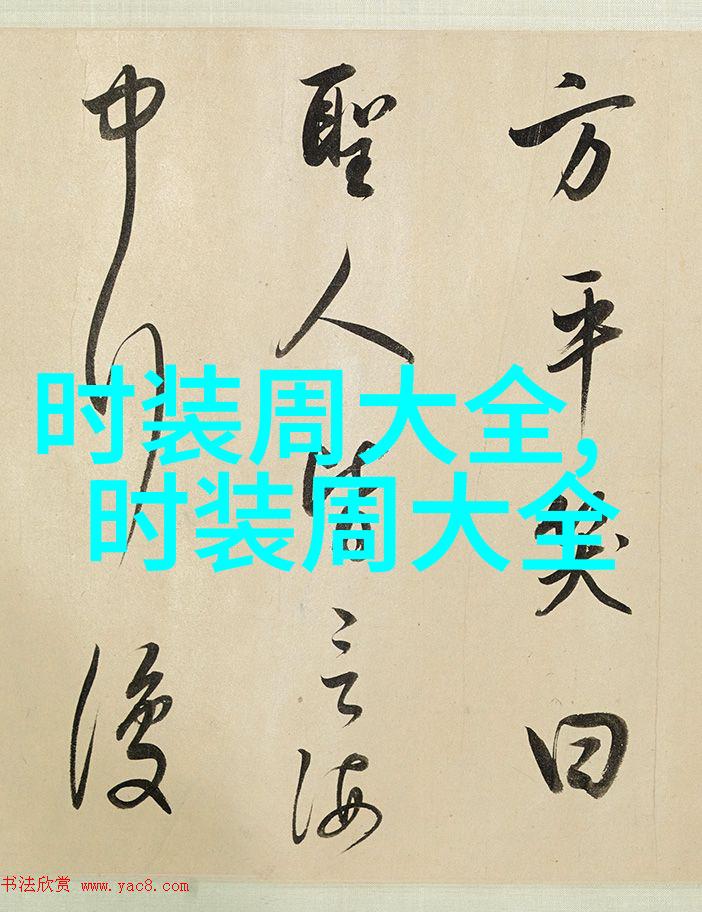 方平笑曰
聖人皆言海
中行復
时装周大全,
时装周大全
书法欣赏 www.yac8.com